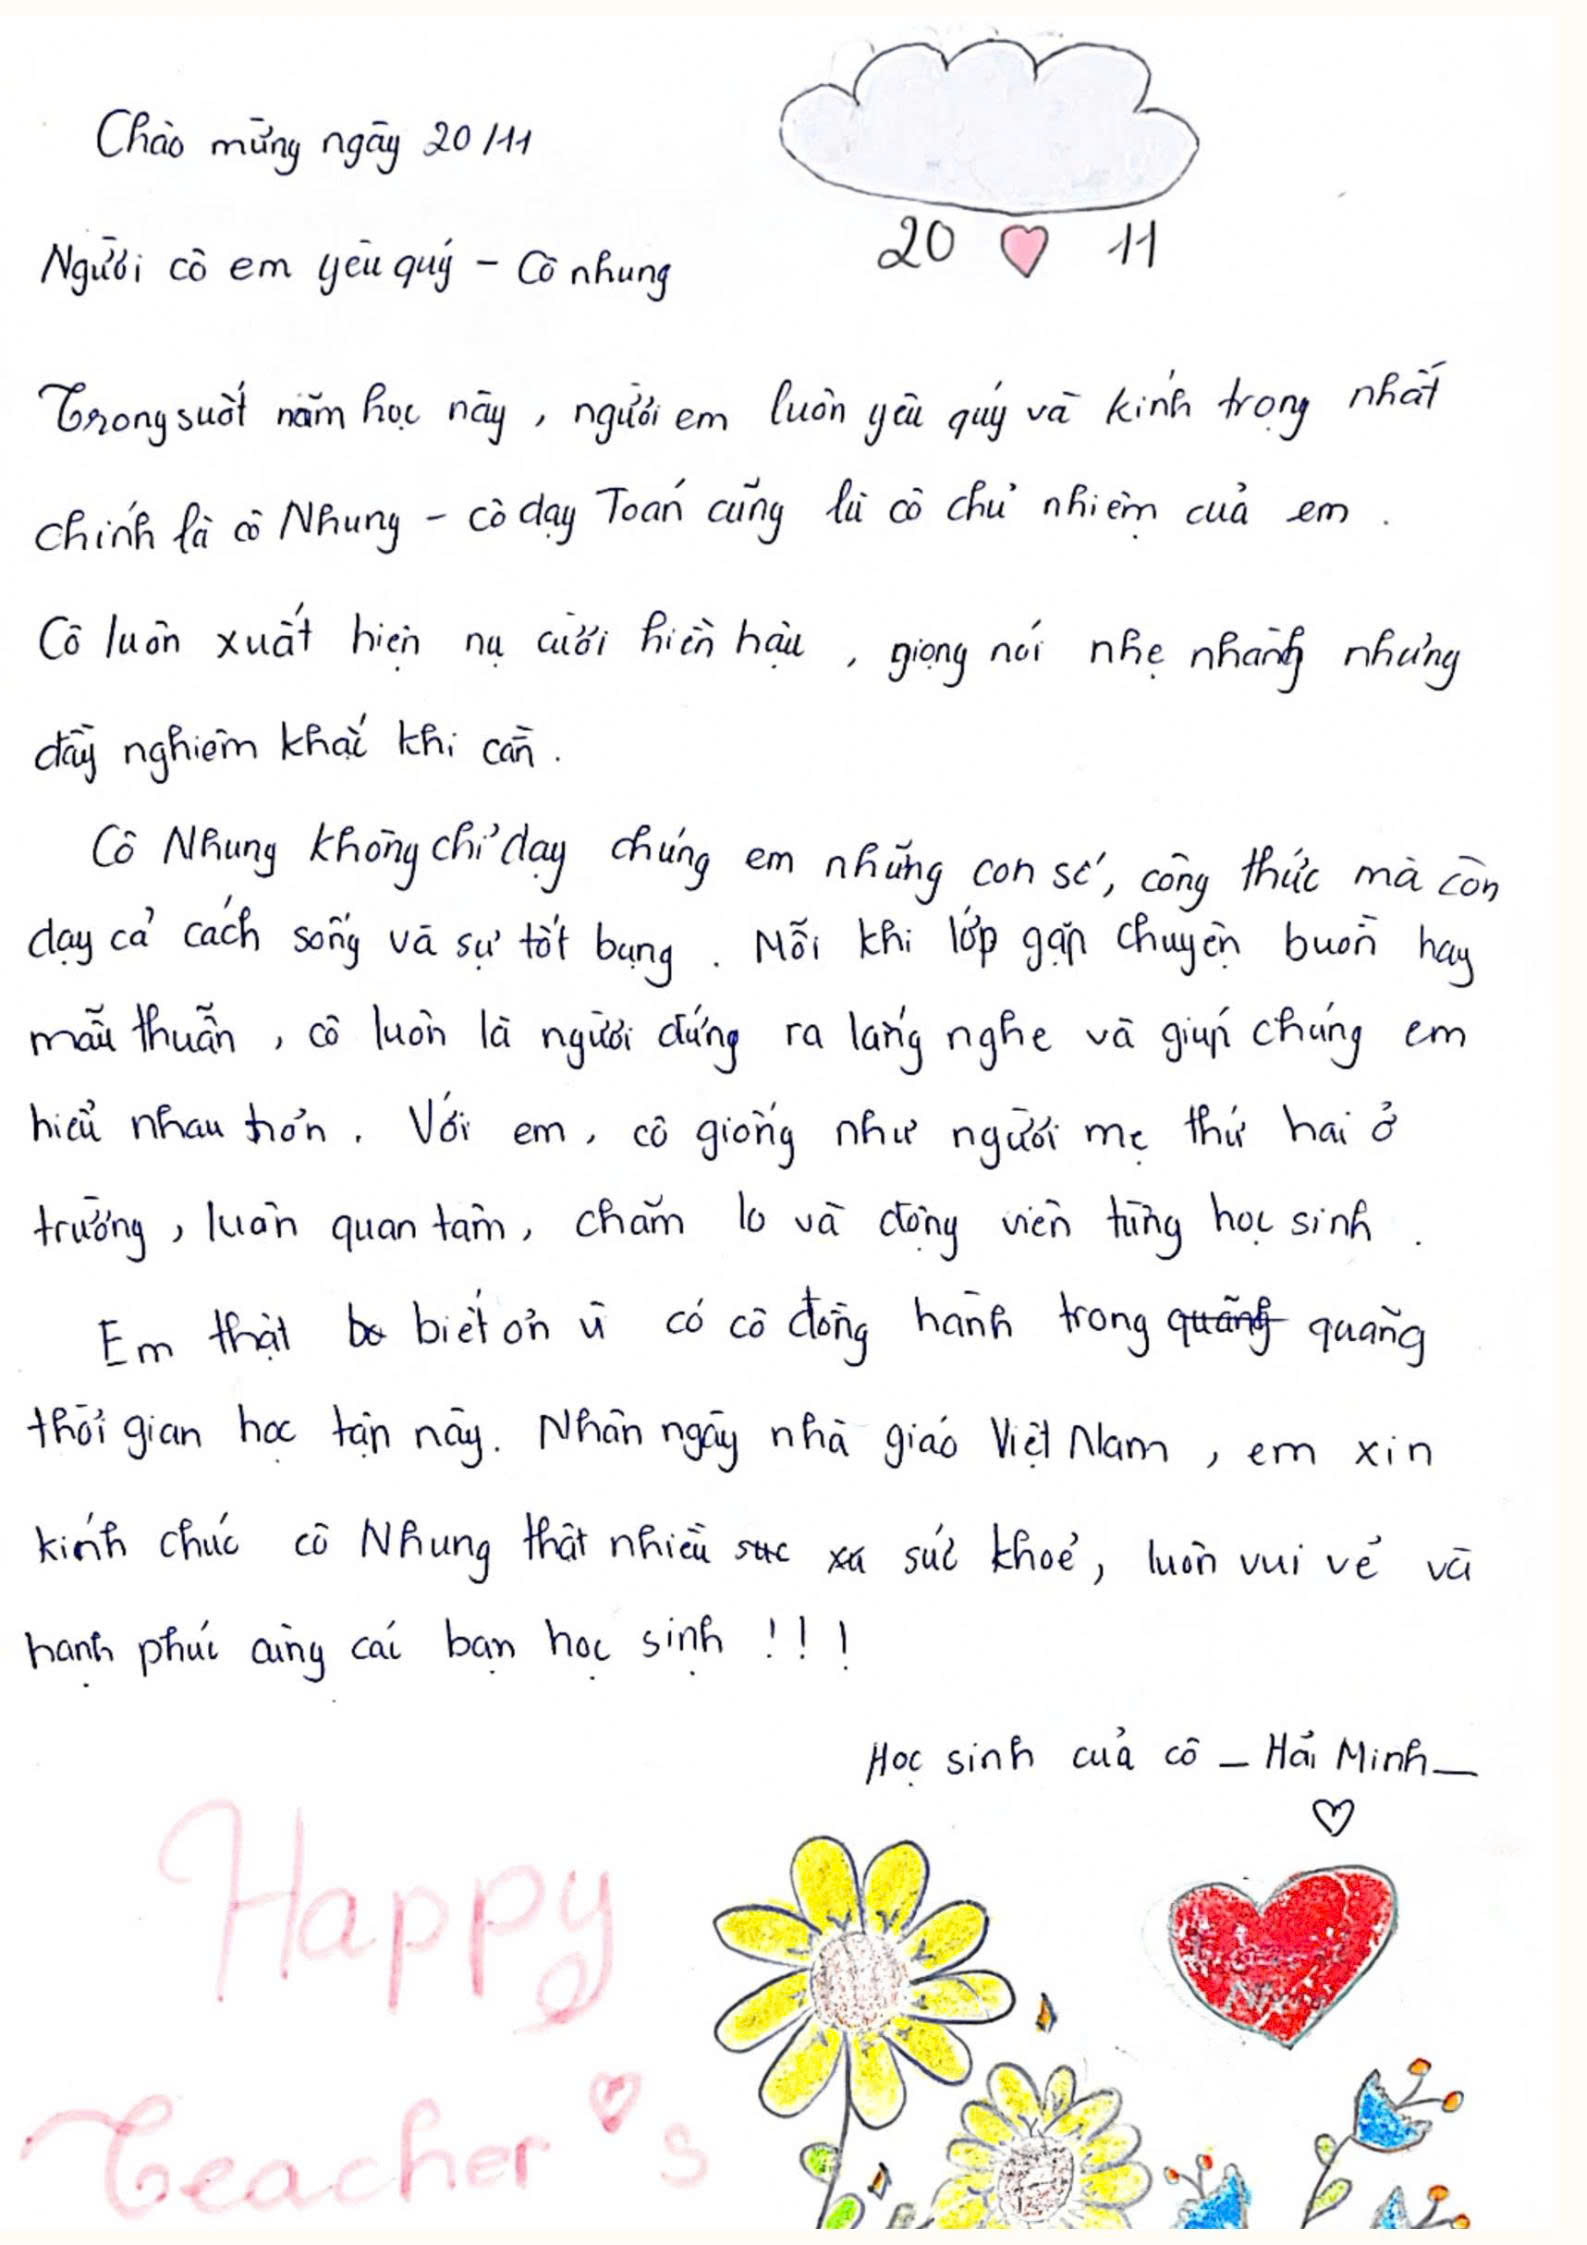 Chào mừng ngày 20/11
20 11
Người cô em yêu quý - Cô nhung
Trong suốt năm học này, người em luôn yêu quý và kính trọng nhất
chính là cô Nhung - cô dạy Toán cũng là cô chủ nhiệm của em.
Cô luôn xuất hiện nụ cười hiền hậu, giọng nói nhẹ nhành nhưng
đầy nghiêm khắc khi cần.
Cô Nhung không chỉ dạy chúng em những con số, công thức mà còn
dạy cả cách sống và sự tốt bụng. Mỗi khi lớp gặp chuyện buồn hay
mâu thuẫn, cô luôn là người đứng ra lắng nghe và giúp chúng em
hiểu nhau hơn. Với em, cô giống như người mẹ thứ hai ở
trường, luôn quan tâm, chăm lo và động viên từng học sinh.
Em thật biết ơn vì có cô đồng hành trong quãng quãng
thời gian học tập này. Nhân ngày nhà giáo Việt Nam, em xin
kính chúc cô Nhung thật nhiều sức khoẻ, luôn vui vẻ và
hạnh phúc cùng các bạn học sịnh !!!
Học sinh của cô - Hải Minh -
Happy
Teacher's